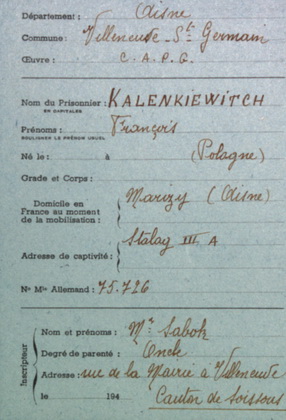 Département : Aisne
Commune : Villeneuve-St Germain
Œuvre : C. A. P. G.
Nom du Prisonnier : KALENKIEWITCH
EN CAPITALES
Prénoms : François
SOULIGNER LE PRÉNOM USUEL
Né le : à (Pologne)
Grade et Corps :
Domicile en
France au moment
de la mobilisation : Marizy (Aisne)
Stalag III A
Adresse de captivité :
No Mle Allemand : 75.726
Inscripteur
Nom et prénoms : Mr Sabok
Degré de parenté : Oncle
Adresse : rue de la Mairie à Villeneuve
le 194 Canton de Soissons